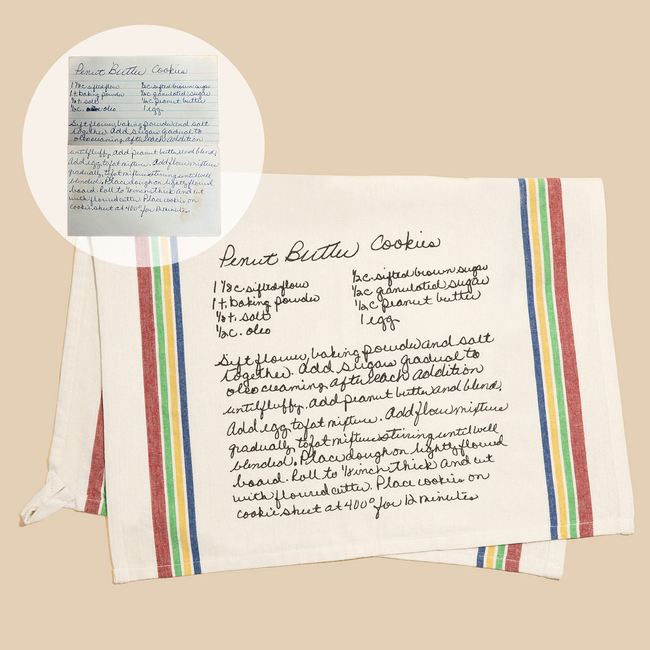 Penut Butter Cookies
1 1/2 c sifted flour
1 t. baking powder
1/2 t. salt
1/2 c. oleo
1/2 c sifted brown sugar
1/2 c granulated sugar
1/2 c peanut butter
1 egg
Sift flour, baking powder and salt
together. Add sugars gradual to
oleo creaming after each addition
until fluffy. add peanut butter and blend.
Add egg to fat mixture. Add flour mixture
gradually to fat mixture stirring until well
blended. Place dough on lightly floured
board. Roll to 1/8 inch thick and cut
with floured cutter. Place cookies on
cookie sheet at 400° for 12 minutes
Penut Butter Cookies
1 1/2 c sifted flour
1 t. baking powder
1/2 t. salt
1/2 c. oleo
1/2 c. sifted brown sugar
1/2 c granulated sugar
1/2 c peanut butter
1 egg
Sift flour, baking powder and salt
together. Add sugars gradual to
oleo creaming after each addition
until fluffy. add peanut butter and blend.
Add egg to fat mixture. Add flour mixture
gradually to fat mixture stirring until well
blended. Place dough on lightly floured
board. Roll to 1/8 inch thick and cut
with floured cutter. Place cookies on
cookie sheet at 400° for 12 minutes